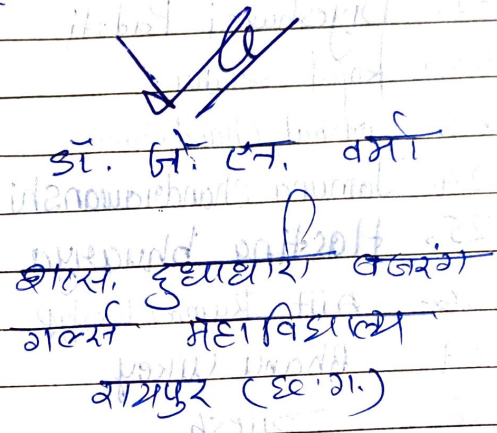 डॉ. जे. एन. वर्मा
शास. दुधाधारी बजरंग
गर्ल्स महाविद्यालय
रायपुर (छ.ग.)